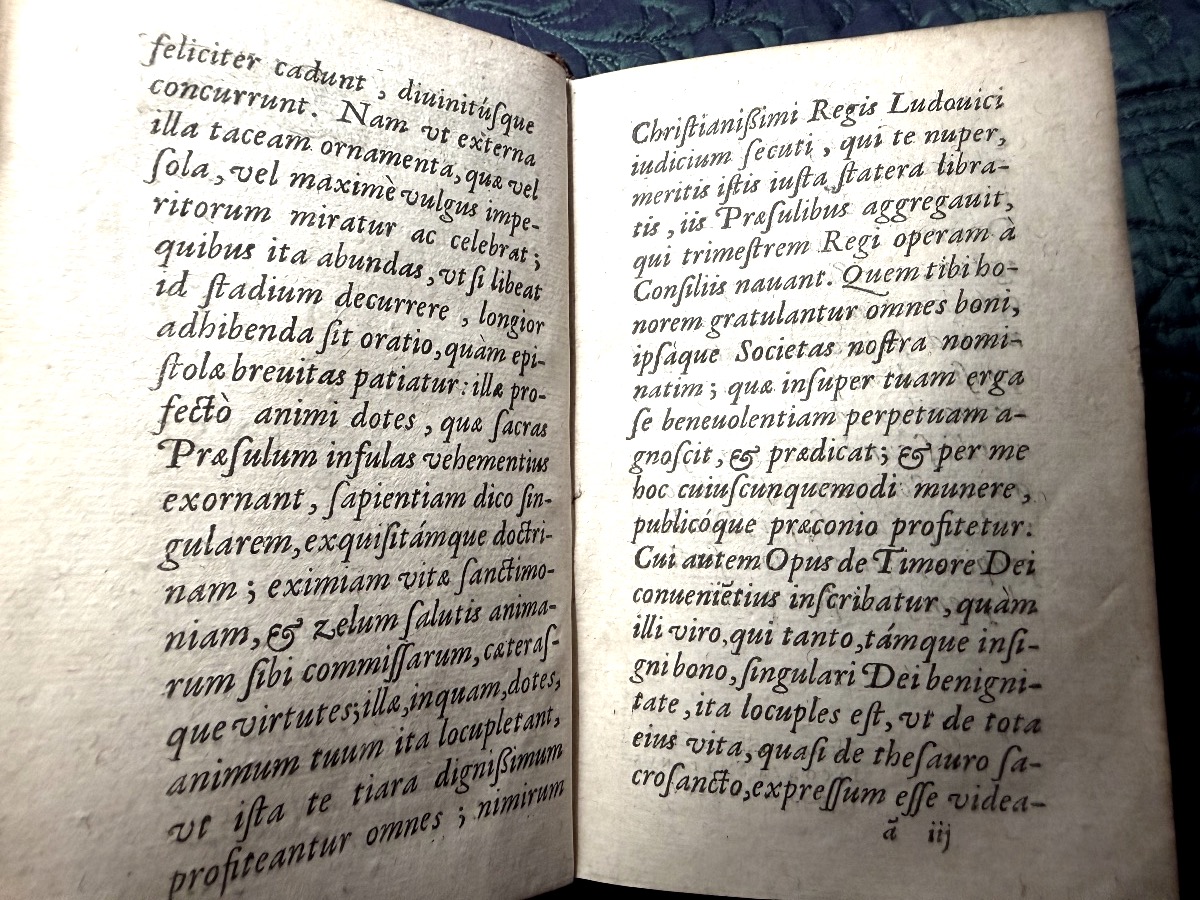 feliciter cadunt , diuinitúſque
concurrunt. Nam vt externa
illa taceam ornamenta, quæ vel
ſola, vel maximè vulgus impe-
ritorum miratur ac celebrat ;
quibus ita abundas, vt ſi libeat
id ſtadium decurrere , longior
adhibenda ſit oratio, quàm epi-
ſtolæ breuitas patiatur : illæ pro-
fectò animi dotes , quæ ſacras
Præſulum infulas vehementius
exornant , ſapientiam dico ſin-
gularem, exquiſitámque doctri-
nam ; eximiam vitæ ſanctimo-
niam, & zelum ſalutis anima-
rum ſibi commiſſarum, cæteraſ-
que virtutes; illæ, inquam, dotes,
animum tuum ita locupletant,
vt iſta te tiara digniſſimum
profiteantur omnes ; nimirum
Chriſtianiſſimi Regis Ludouici
iudicium ſecuti , qui te nuper,
meritis iſtis iuſta ſtatera libra-
tis , iis Præſulibus aggregauit,
qui trimeſtrem Regi operam à
Conſiliis nauant. Quem tibi ho-
norem gratulantur omnes boni,
ipſáque Societas noſtra nomi-
natim ; quæ inſuper tuam erga
ſe beneuolentiam perpetuam a-
gnoſcit , & prædicat ; & per me
hoc cuiuſcunquemodi munere ,
publicóque præconio profitetur.
Cui autem Opus de Timore Dei
conueniẽtius inſcribatur , quàm
illi viro, qui tanto, támque inſi-
gni bono, ſingulari Dei benigni-
tate , ita locuples eſt, vt de tota
eius vita, quaſi de theſauro ſa-
croſancto, expreſſum eſſe videa-
ã iij